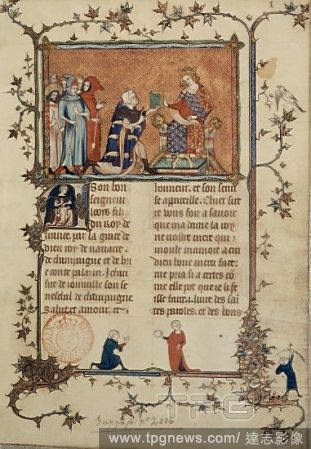 A son bon
seigneur
looys filz
du Roy de
france par la grace de
dieu roy de nauarre
de champaigne et de bri
e conte palazin. Jehan
sire de ioinuille son se
neschal de champaigne
Salut et amour et
honneur. et son seruise
apareille. Chier sire
ie vous foiz a sauoir
que ma dame la roy
ne vostre mere qui
moult mamoit a cui
dieu bonne merci face
me pria si a certes co
me elle pot que ie li feis
se faire .i. liure des sai
tes paroles. et des bons
n° 2016
TPG
www.tpgnews.com/達志影像